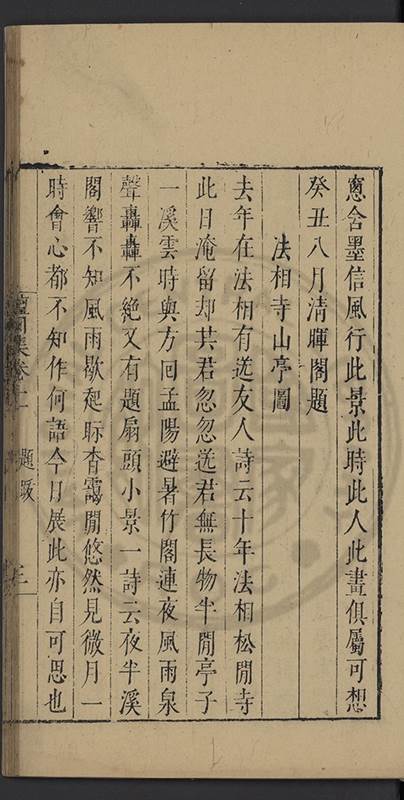 窻含墨信風行此景此時此人此畫俱屬可想
癸丑八月清暉閣題
法相寺山亭圖
去年在法相有送友人詩云十年法相松閒寺
此日淹留却共君忽忽送君無長物半閒亭子
一溪雲時與方回孟陽避暑竹閣連夜風雨泉
聲轟轟不絶又有題扇頭小景一詩云夜半溪
閣響不知風雨歇起眎杳靄閒悠然見微月一
時會心都不知作何語今日展此亦自可思也
檀園集卷十二 題跋